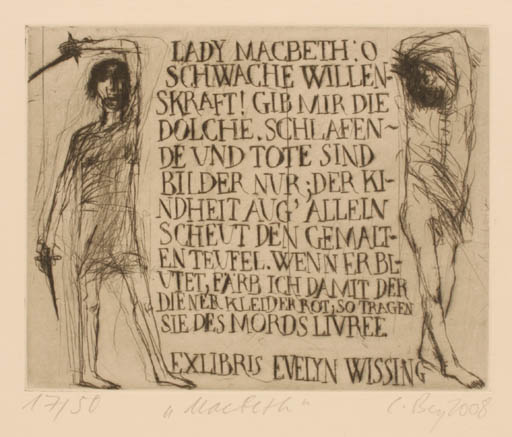 LADY MACBETH: O
SCHWACHE WILLEN-
SKRAFT! GIB MIR DIE
DOLCHE. SCHLAFEN-
DE UND TOTE SIND
BILDER NUR; DER KI-
NDHEIT AUG' ALLEIN
SCHEUT DEN GEMALT-
EN TEUFEL. WENN ER BL-
UTET, FÄRB ICH DAMIT DER
DIENER KLEIDER ROT; SO TRAGEN
SIE DES MORDS LIVREE.
EXLIBRIS EVELYN WISSING
17/50 „Macbeth“ 2008